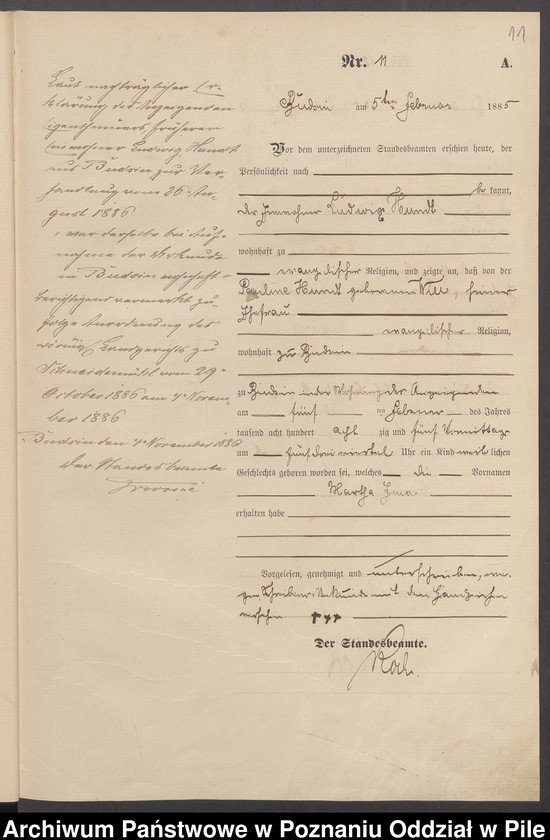 11
Nr. 11 A.
Budsin am 5ten Februar 1885
Vor dem unterzeichneten Standesbeamten erschien heute, der
Persönlichkeit nach
be kannt,
der Einwohner Ludwig Hundt
wohnhaft zu
evangelischer Religion, und zeigte an, daß von der
Pauline Hundt geborenen Will, seiner
Ehefrau
evangelischer Religion,
wohnhaft zu Budsin
zu Budsin in der Wohnung des Anzeigenden
am fünf ten Februar des Jahres
tausend acht hundert acht zig und fünf Vormittags
um fünf drei viertel Uhr ein Kind weib lichen
Geschlechts geboren worden sei, welches die Vornamen
Martha
erhalten habe
Vorgelesen, genehmigt und unterschrieben, we-
gen Schreibens Unkunde mit dem Handzeichen
versehen +++
Der Standesbeamte.
Laut nachträglicher Er-
klärung des Anzeigenden
Eigenthümers früheren
Einwohner Ludwig Hundt
aus Budsin zur Ver-
handlung vom 26 Au-
gust 1886
war derselbe bei Auf-
nahme der Urkunde
in Budsin wohnhaft
vermerkt zu-
folge Anordnung des
Königl. Landgerichts zu
Schneidemühl vom 29
October 1886 am 4 Novem-
ber 1886
Budsin den 4 November 1886
Der Standesbeamte
Archiwum Państwowe w Poznaniu Oddział w Pile